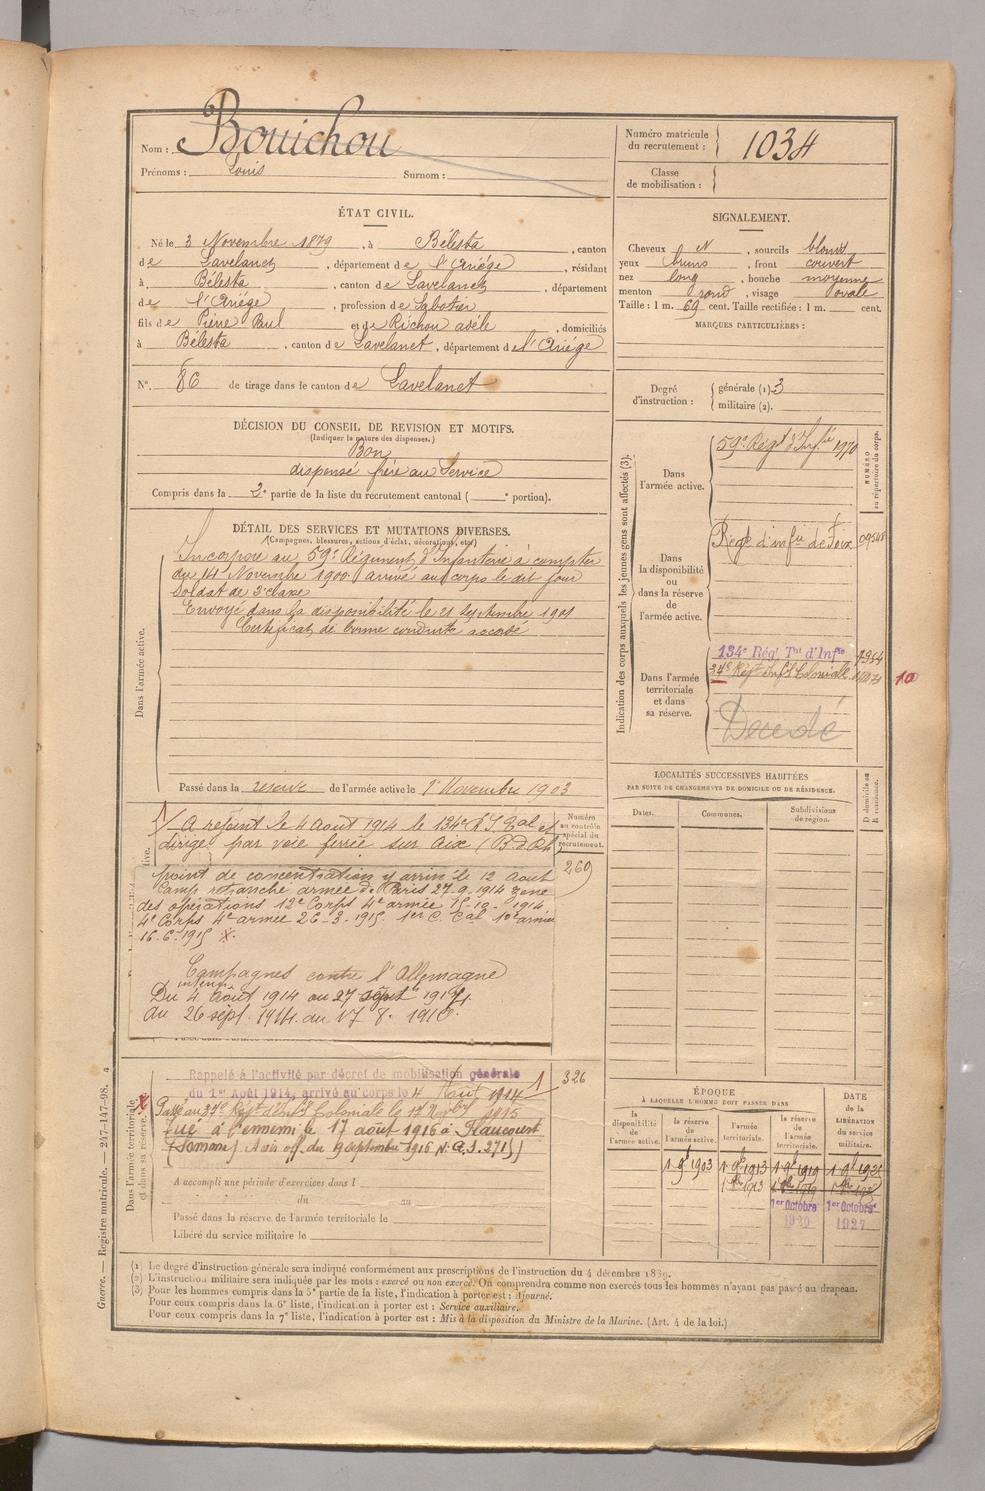 Nom : Bouichou
Prénoms : Louis Surnom :
Numéro matricule du recrutement : 1034
Classe de mobilisation :
ÉTAT CIVIL.
Né le 3 Novembre 1879, à Bélesta, canton
de Lavelanet, département de l'Ariège, résidant
à Bélesta, canton de Lavelanet, département
de l'Ariège, profession de Sabotier
fils de Pierre Paul et de Richou adèle, domiciliés
à Bélesta, canton de Lavelanet, département de l'Ariège
N°. 86 de tirage dans le canton de Lavelanet
SIGNALEMENT.
Cheveux N, sourcils blond
yeux bruns, front couvert
nez long, bouche moyenne
menton rond, visage ovale
Taille : 1 m. 69 cent. Taille rectifiée : 1 m. cent.
MARQUES PARTICULIÈRES :
Degré d'instruction : générale (1). 3
militaire (2).
DÉCISION DU CONSEIL DE REVISION ET MOTIFS.
(Indiquer la nature des dispenses.)
Bon
dispensé frère au Service
Compris dans la 2e partie de la liste du recrutement cantonal ( e portion).
DÉTAIL DES SERVICES ET MUTATIONS DIVERSES.
(Campagnes, blessures, actions d'éclat, décorations, etc.)
Dans l'armée active.
Incorporé au 59e Régiment d'Infanterie à compter
du 14 Novembre 1900. arrivé au corps le dit jour
Soldat de 2e classe
Envoyé dans la disponibilité le 21 Septembre 1901
Certificat de bonne conduite accordé
Passé dans la réserve de l'armée active le 1er Novembre 1903
Indication des corps auxquels les jeunes gens sont affectés (3).
NUMÉRO au répertoire du corps.
Dans l'armée active.
59e Régt d'Infie 1970
Dans la disponibilité ou dans la réserve de l'armée active.
Régt d'infie de Foix 09548
Dans l'armée territoriale et dans sa réserve.
134e Rég. Tal d'Infie
37e Régt Infie Coloniale
10
Décédé
LOCALITÉS SUCCESSIVES HABITÉES
PAR SUITE DE CHANGEMENTS DE DOMICILE OU DE RÉSIDENCE.
Dates. Communes. Subdivisions de région. D domicile ou R résidence.
Numéro au contrôle spécial du recrutement.
260
1/ A rejoint le 4 Août 1914 le 134e R.I. Tal et
dirigé par voie ferrée sur Aix (B. d. Rh.)
point de concentration y arrivé le 12 Aout
Camp retranché armée de Paris 27.9.1914 zone
des opérations 12e Corps 4e armée 15-10-1914
4e Corps 4e armée 26-3-1915 1er C. Cal 10e armée
16.6.1915 X.
Campagnes contre l'Allemagne
intérieur
Du 4 Août 1914 au 27 sept 1914
Au 26 sept. 1914. au 17 8. 1916.
Dans l'armée territoriale et dans sa réserve.
Rappelé à l'activité par décret de mobilisation générale
du 1er Août 1914, arrivé au corps le 4 Août 1914 1
326
X Passé au 37e Régt d'Infie Coloniale le 17 1915
Tué à l'ennemi le 17 août 1916 à Flaucourt
(Somme) Avis off. du 19 Septembre 1916 N. A.S. 2715)
A accompli une période d'exercices dans l
du au
Passé dans la réserve de l'armée territoriale le
Libéré du service militaire le
ÉPOQUE
À LAQUELLE L'HOMME DOIT PASSER DANS
la disponibilité de l'armée active. la réserve de l'armée active. l'armée territoriale. la réserve de l'armée territoriale.
DATE de la LIBÉRATION du service militaire.
1 9bre 1903 1 9bre 1913 1 9bre 1919 1 9bre 1925
1er Octobre 1920 1er Octobre 1927
(1) Le degré d'instruction générale sera indiqué conformément aux prescriptions de l'instruction du 4 décembre 1889.
(2) L'instruction militaire sera indiquée par les mots : exercé ou non exercé. On comprendra comme non exercés tous les hommes n'ayant pas passé au drapeau.
(3) Pour les hommes compris dans la 5e partie de la liste, l'indication à porter est : Ajourné.
Pour ceux compris dans la 6e liste, l'indication à porter est : Service auxiliaire.
Pour ceux compris dans la 7e liste, l'indication à porter est : Mis à la disposition du Ministre de la Marine. (Art. 4 de la loi.)
Guerre. — Registre matricule. — 247-147-98.